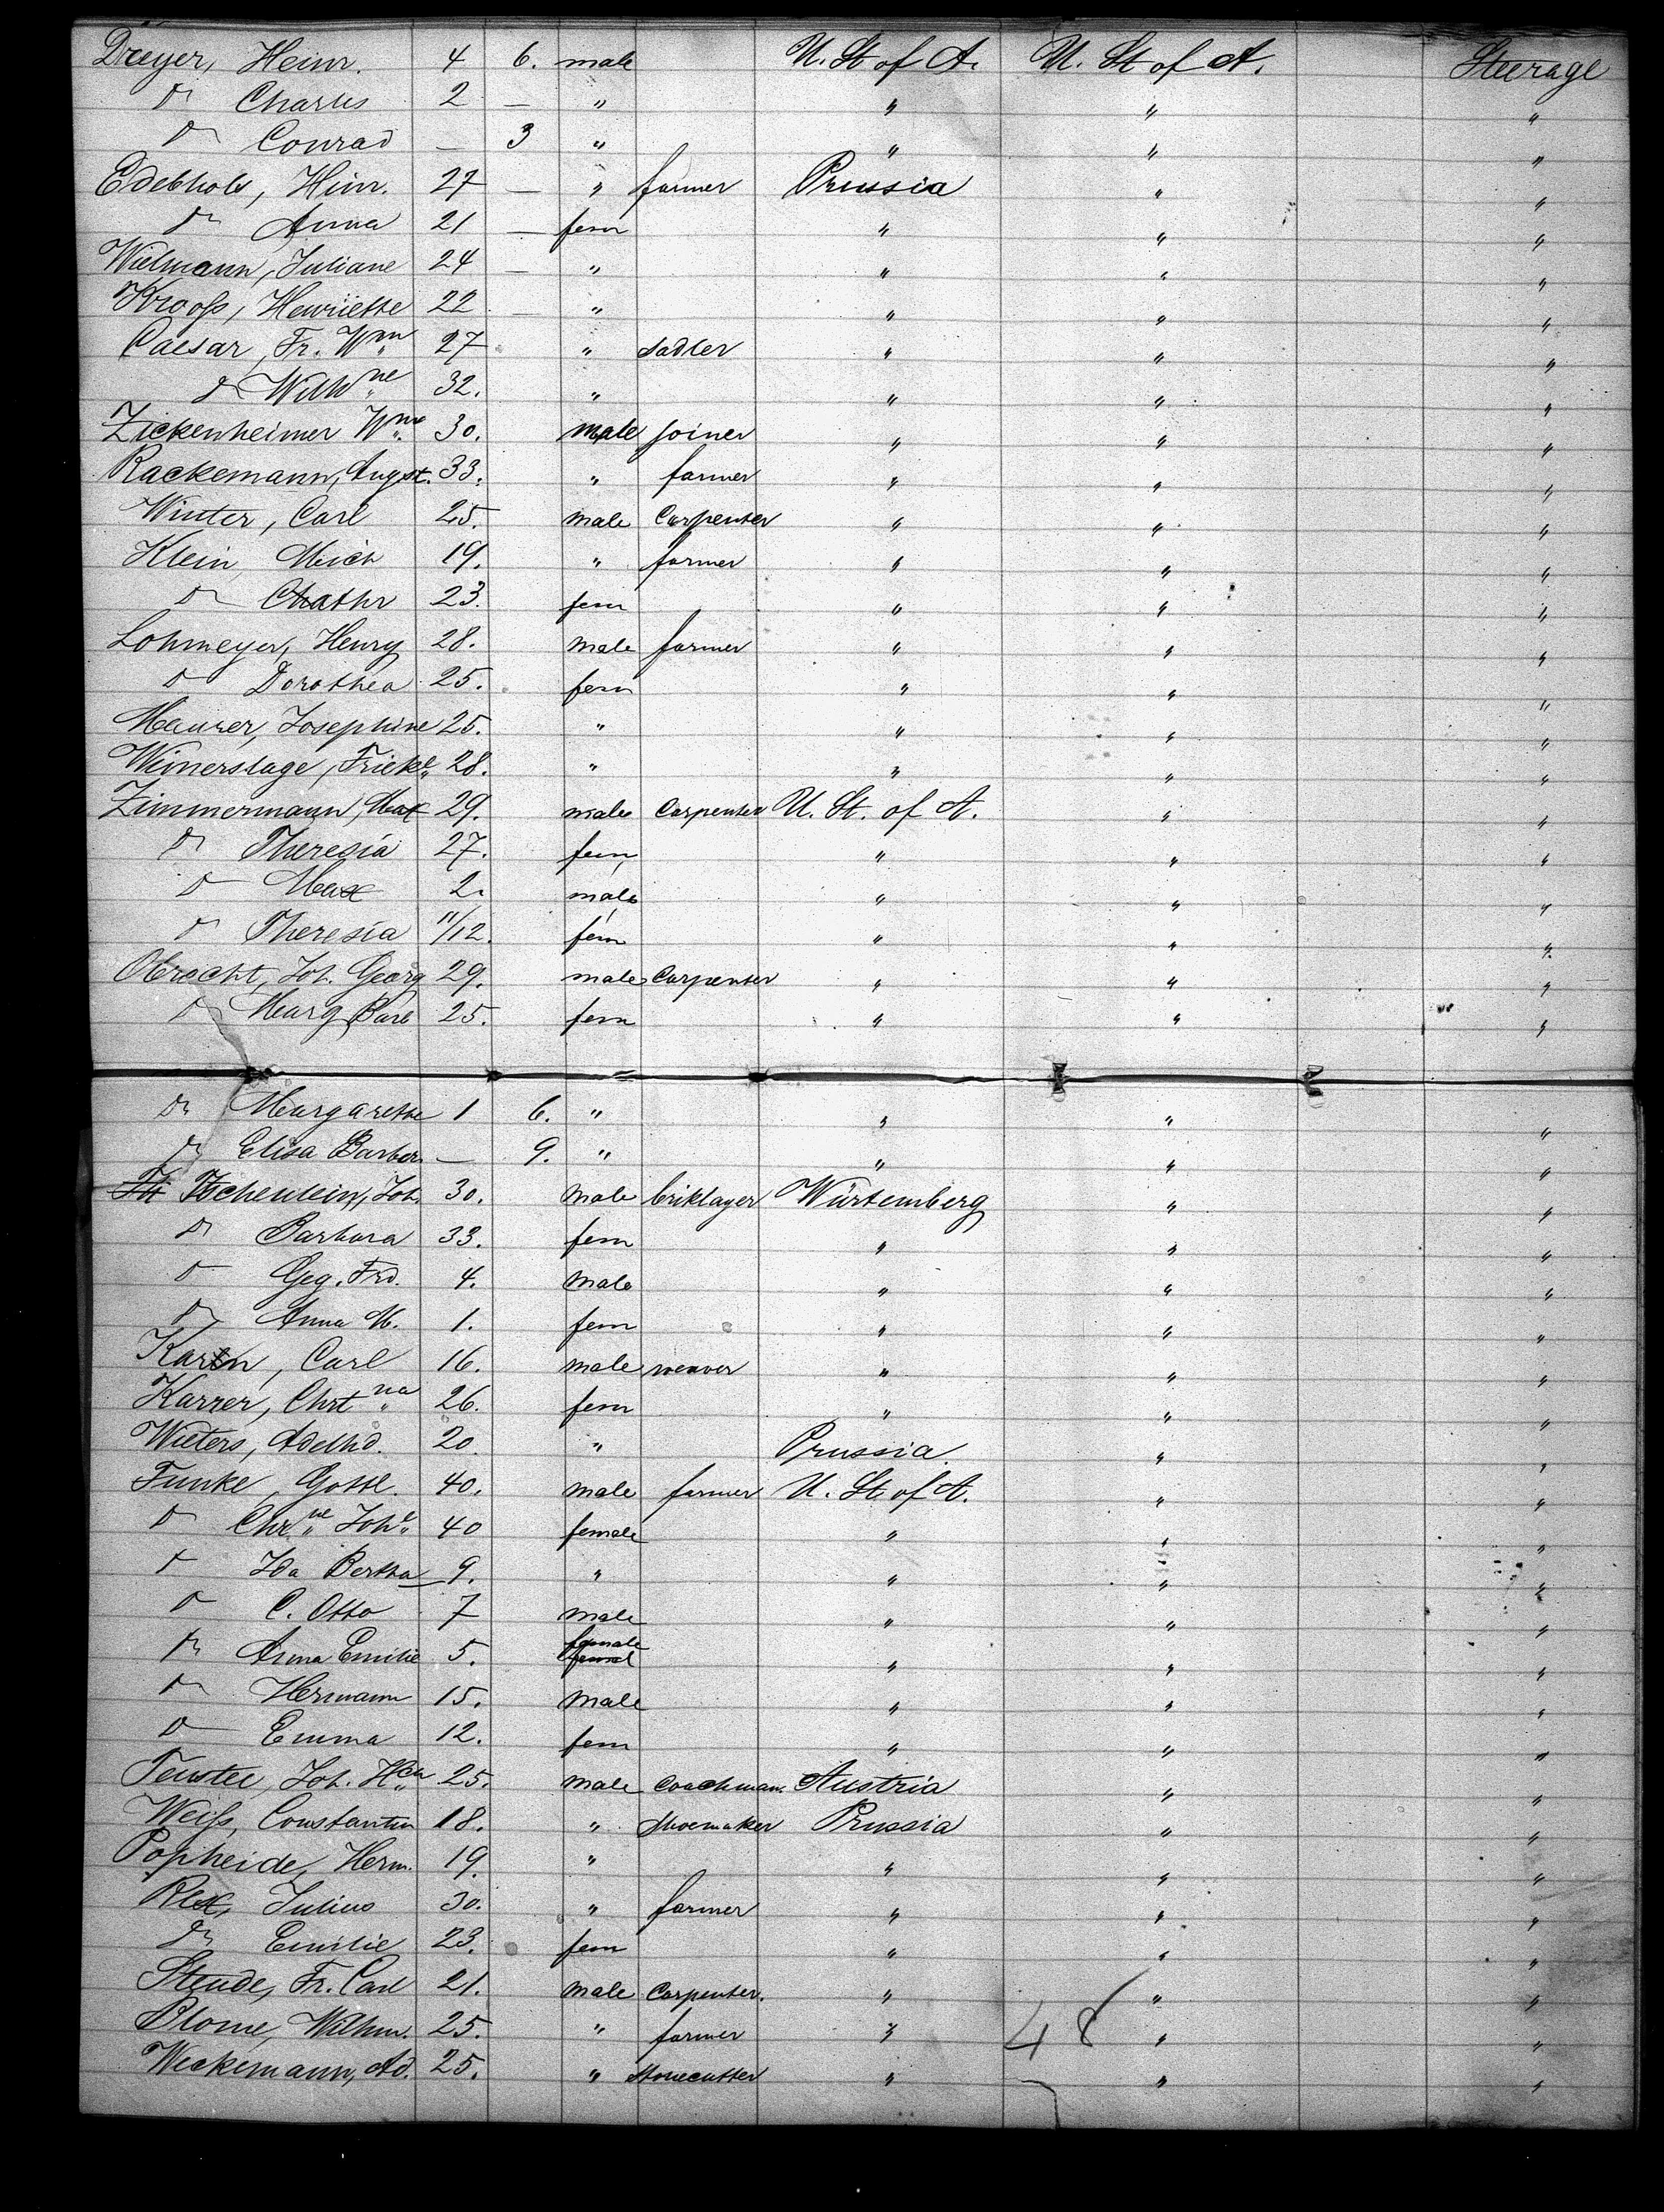 Dreyer, Heinr. 4 6. male U. St of A. U. St of A. Steerage
do Charles 2 — " " " "
do Conrad — 3 " " " "
Edebhols, Heinr. 27 — " farmer Prussia " "
do Anna 21 — fem " " "
Wielmann, Juliane 24 — " " " "
Krooß, Henriette 22 — " " " "
Caesar, Fr. Wm 27 " sadler " " "
do Wilhne 32. " " " "
Zickenheimer Wm 30. male joiner " " "
Rackemann, Augst. 33. " farmer " " "
Winter, Carl 25. male Carpenter " " "
Klein, Mich 19. " farmer " " "
do Cathr 23. fem " " "
Lohmeyer, Henry 28. male farmer " " "
do Dorothea 25. fem " " "
Maurer, Josephine 25. " " " "
Wimerslage, Frieke 28. " " " "
Zimmermann, Max 29. male Carpenter U. St. of A. " "
do Theresia 27. fem " " "
do Max 2. male " " "
do Theresia 11/12. fem " " "
Obracht, Joh. Georg 29. male Carpenter " " "
do Marg Barb 25. fem " " "
do Margarethe 1 6. " " " "
do Elisa Barbar — 9. " " " "
Tscheulein, Joh. 30. male briklayer Würtemberg " "
do Barbara 33. fem " " "
do Geg. Frd. 4. male " " "
do Anna M. 1. fem " " "
Kartn, Carl 16. male weaver " " "
Karrer, Chrtna 26. fem " " "
Wieters, Adelhd. 20. " Prussia. " "
Funke, Gottl. 40. male farmer U. St of A. " "
do Chrne Johe 40 female " " "
do Ida Bertha 9. " " " "
do C. Otto 7 male " " "
do Anna Emilie 5. female " " "
do Hermann 15. male " " "
do Emma 12. fem " " "
Teustee, Joh. Hch 25. male Coachman. Austria " "
Weiß, Constantin 18. " Shoemaker Prussia " "
Popheide, Herm. 19. " " " "
Rex, Julius 30. " farmer " " "
do Emilie 23. fem " " "
Steude, Fr. Carl 21. male Carpenter. " " "
Blome, Wilhm. 25. " farmer " 48 " "
Weckemann, Ad. 25. " Stonecutter " " "